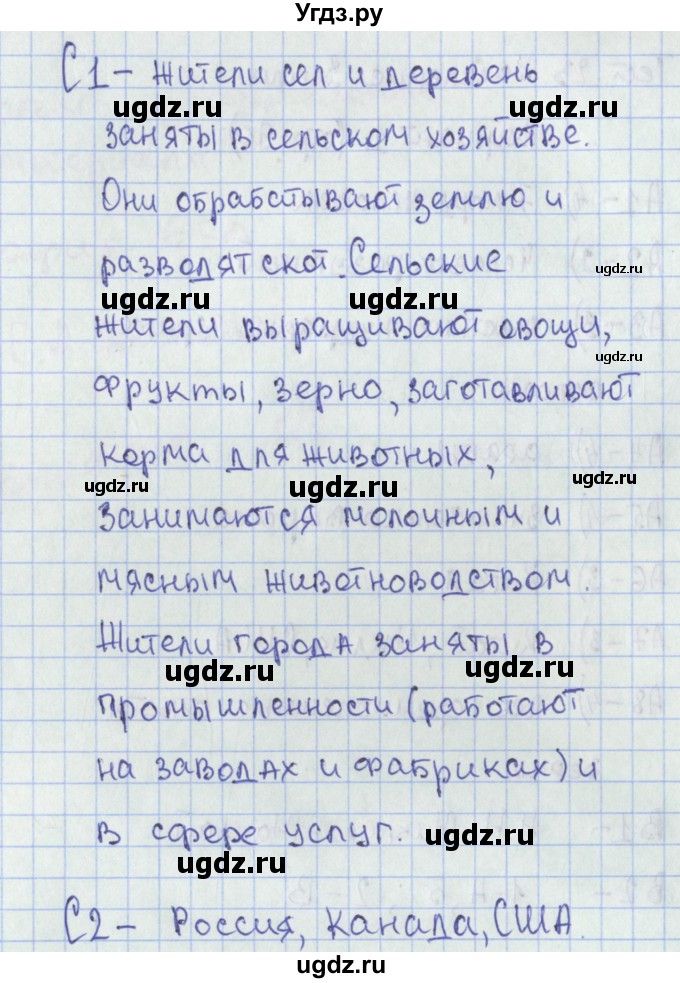 Угдз.ру
С1 - Жители сел и деревень
ugdz.ru ugdz.ru
заняты в сельском хозяйстве.
Они обрабатывают землю и
разводят скот. Сельские
ugdz.ru
ugdz.ru ugdz.ru
жители выращивают овощи,
ugdz.ru
фрукты, зерно, заготавливают
корма для животных,
ugdz.ru ugdz.ru ugdz.ru
занимаются молочным и
мясным животноводством.
Жители города заняты в
ugdz.ru ugdz.ru
промышленности (работают
на заводах и фабриках) и
в сфере услуг. ugdz.ru
ugdz.ru
С2 - Россия, Канада, США.
ugdz.ru